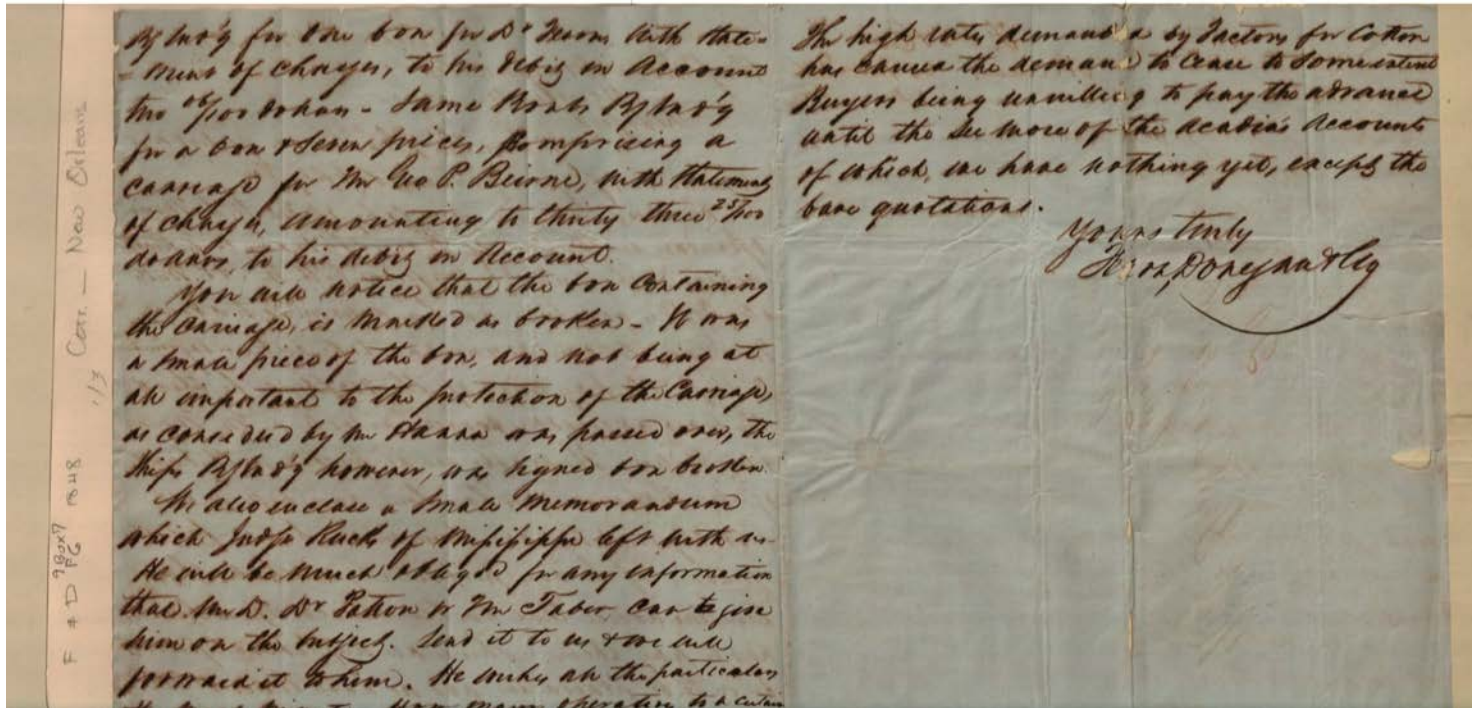 for one box for Dr Moore with State-
-ment of charges, to his debit in Account
two 06/100 dollars - Same Boats
for a box & seven pieces, comprising a
carriage for Mr Geo P. Beirne, with statement
of charges, amounting to thirty three 25/100
dollars, to his debit in Account.
You will notice that the box containing
the carriage, is marked as broken - It was
a small piece of the box, and not being at
all important to the protection of the Carriage,
as conceded by Mr Hanna was passed over, the
Ships however, was signed box broken.
We also enclose a small Memorandum
which Judge Rucks of Missippi left with us -
He will be much obliged for any information
that Mr D. Dr Patton or Mr Tabor can give
him on the subject. Send it to us & we will
forward it to him. He wishes all the particulars
operation to a certain
The high rates demanded by Factors for Cotton
has caused the demand to cease to some extent
Buyers being unwilling to pay the advance
until the see more of the Acadia's Accounts
of which, we have nothing yet, except the
bare quotations.
Yours truly
Fearn, Donegan & Co
F & D Box 7 F6 1848 1/3 Corr. — New Orleans